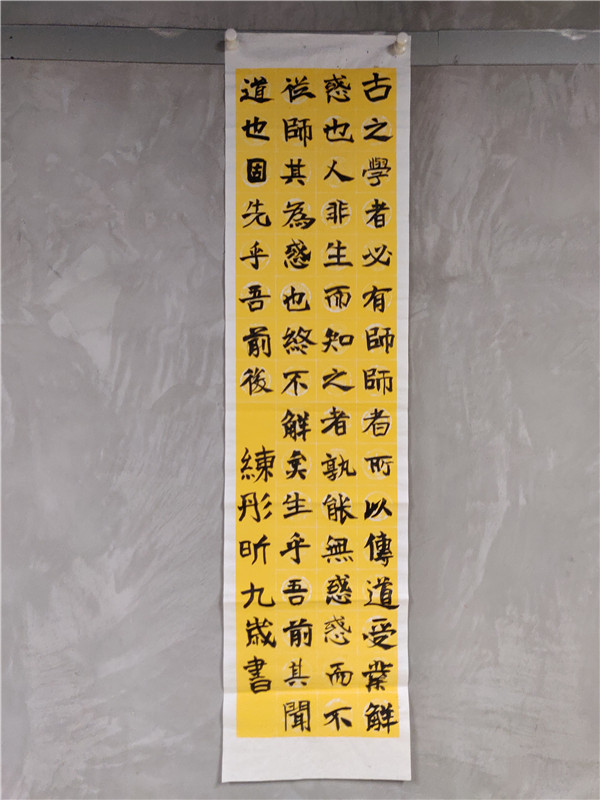 古之學者必有師師者所以傳道受業解
惑也人非生而知之者孰能無惑惑而不
從師其為惑也終不解矣生乎吾前其聞
道也固先乎吾前後
練彤昕九歲書